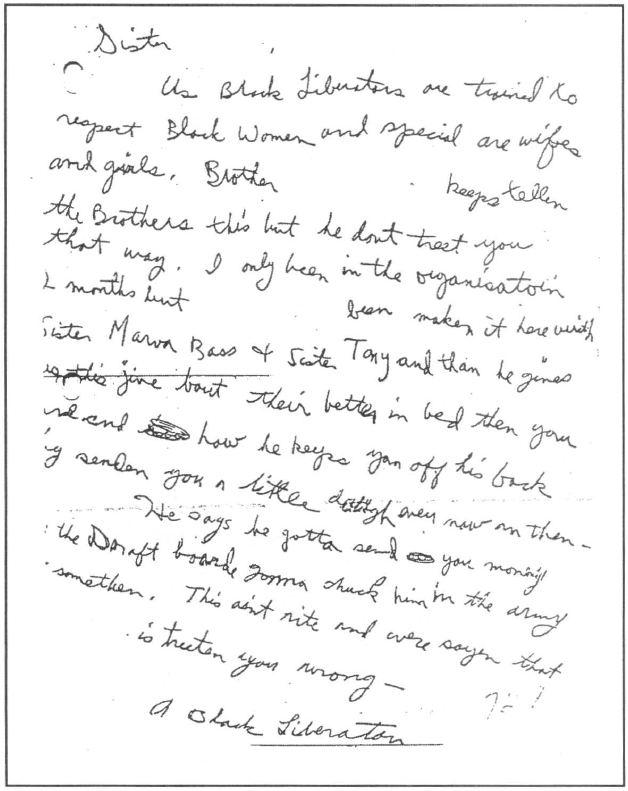 Sister
Us Black Liberators are trained to
respect Black Women and special are wifes
and girls. Brother keeps tellen
the Brothers this but he dont treet you
that way. I only been in the organisatoin
2 months but been maken it here with
Sister Marva Bass & Sister Tony and than he gives
us this jive bout their better in bed then you
and how he keeps you off his back
by senden you a little dough ever now an then -
He says he gotta send you monay
the Draft boarde gonna chuck him in the army
somethen. This aint rite and were sayen that
is treeten you wrong -
A Black Liberator